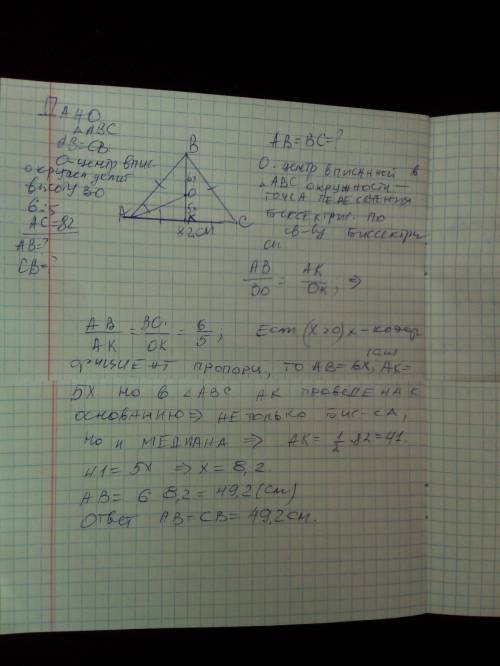 ДАНО
△ABC
AB=CB
O-центр впис
окружн делит
высоту BO
6:5
AC=82
AB=?
CB=?
B
O
5
A
K
C
82см
AB=BC=?
O-центр вписанной в
△ABC окружности —
точка пересечения
биссектрис. По
св-ву биссектри
сы
AB/BO = AK/OK, ⇒
AB/AK = BO/OK = 6/5; Если (x>0) x-коэф
фициент пропорц, то AB=6x, AK=
(см)
5x но в △ABC AK проведена к
основанию ⇒ не только бис-са,
но и медиана ⇒ AK= 1/2·82=41.
41=5x ⇒ x=8,2.
AB= 6 8,2=49,2(см)
Ответ AB=CB=49,2см.